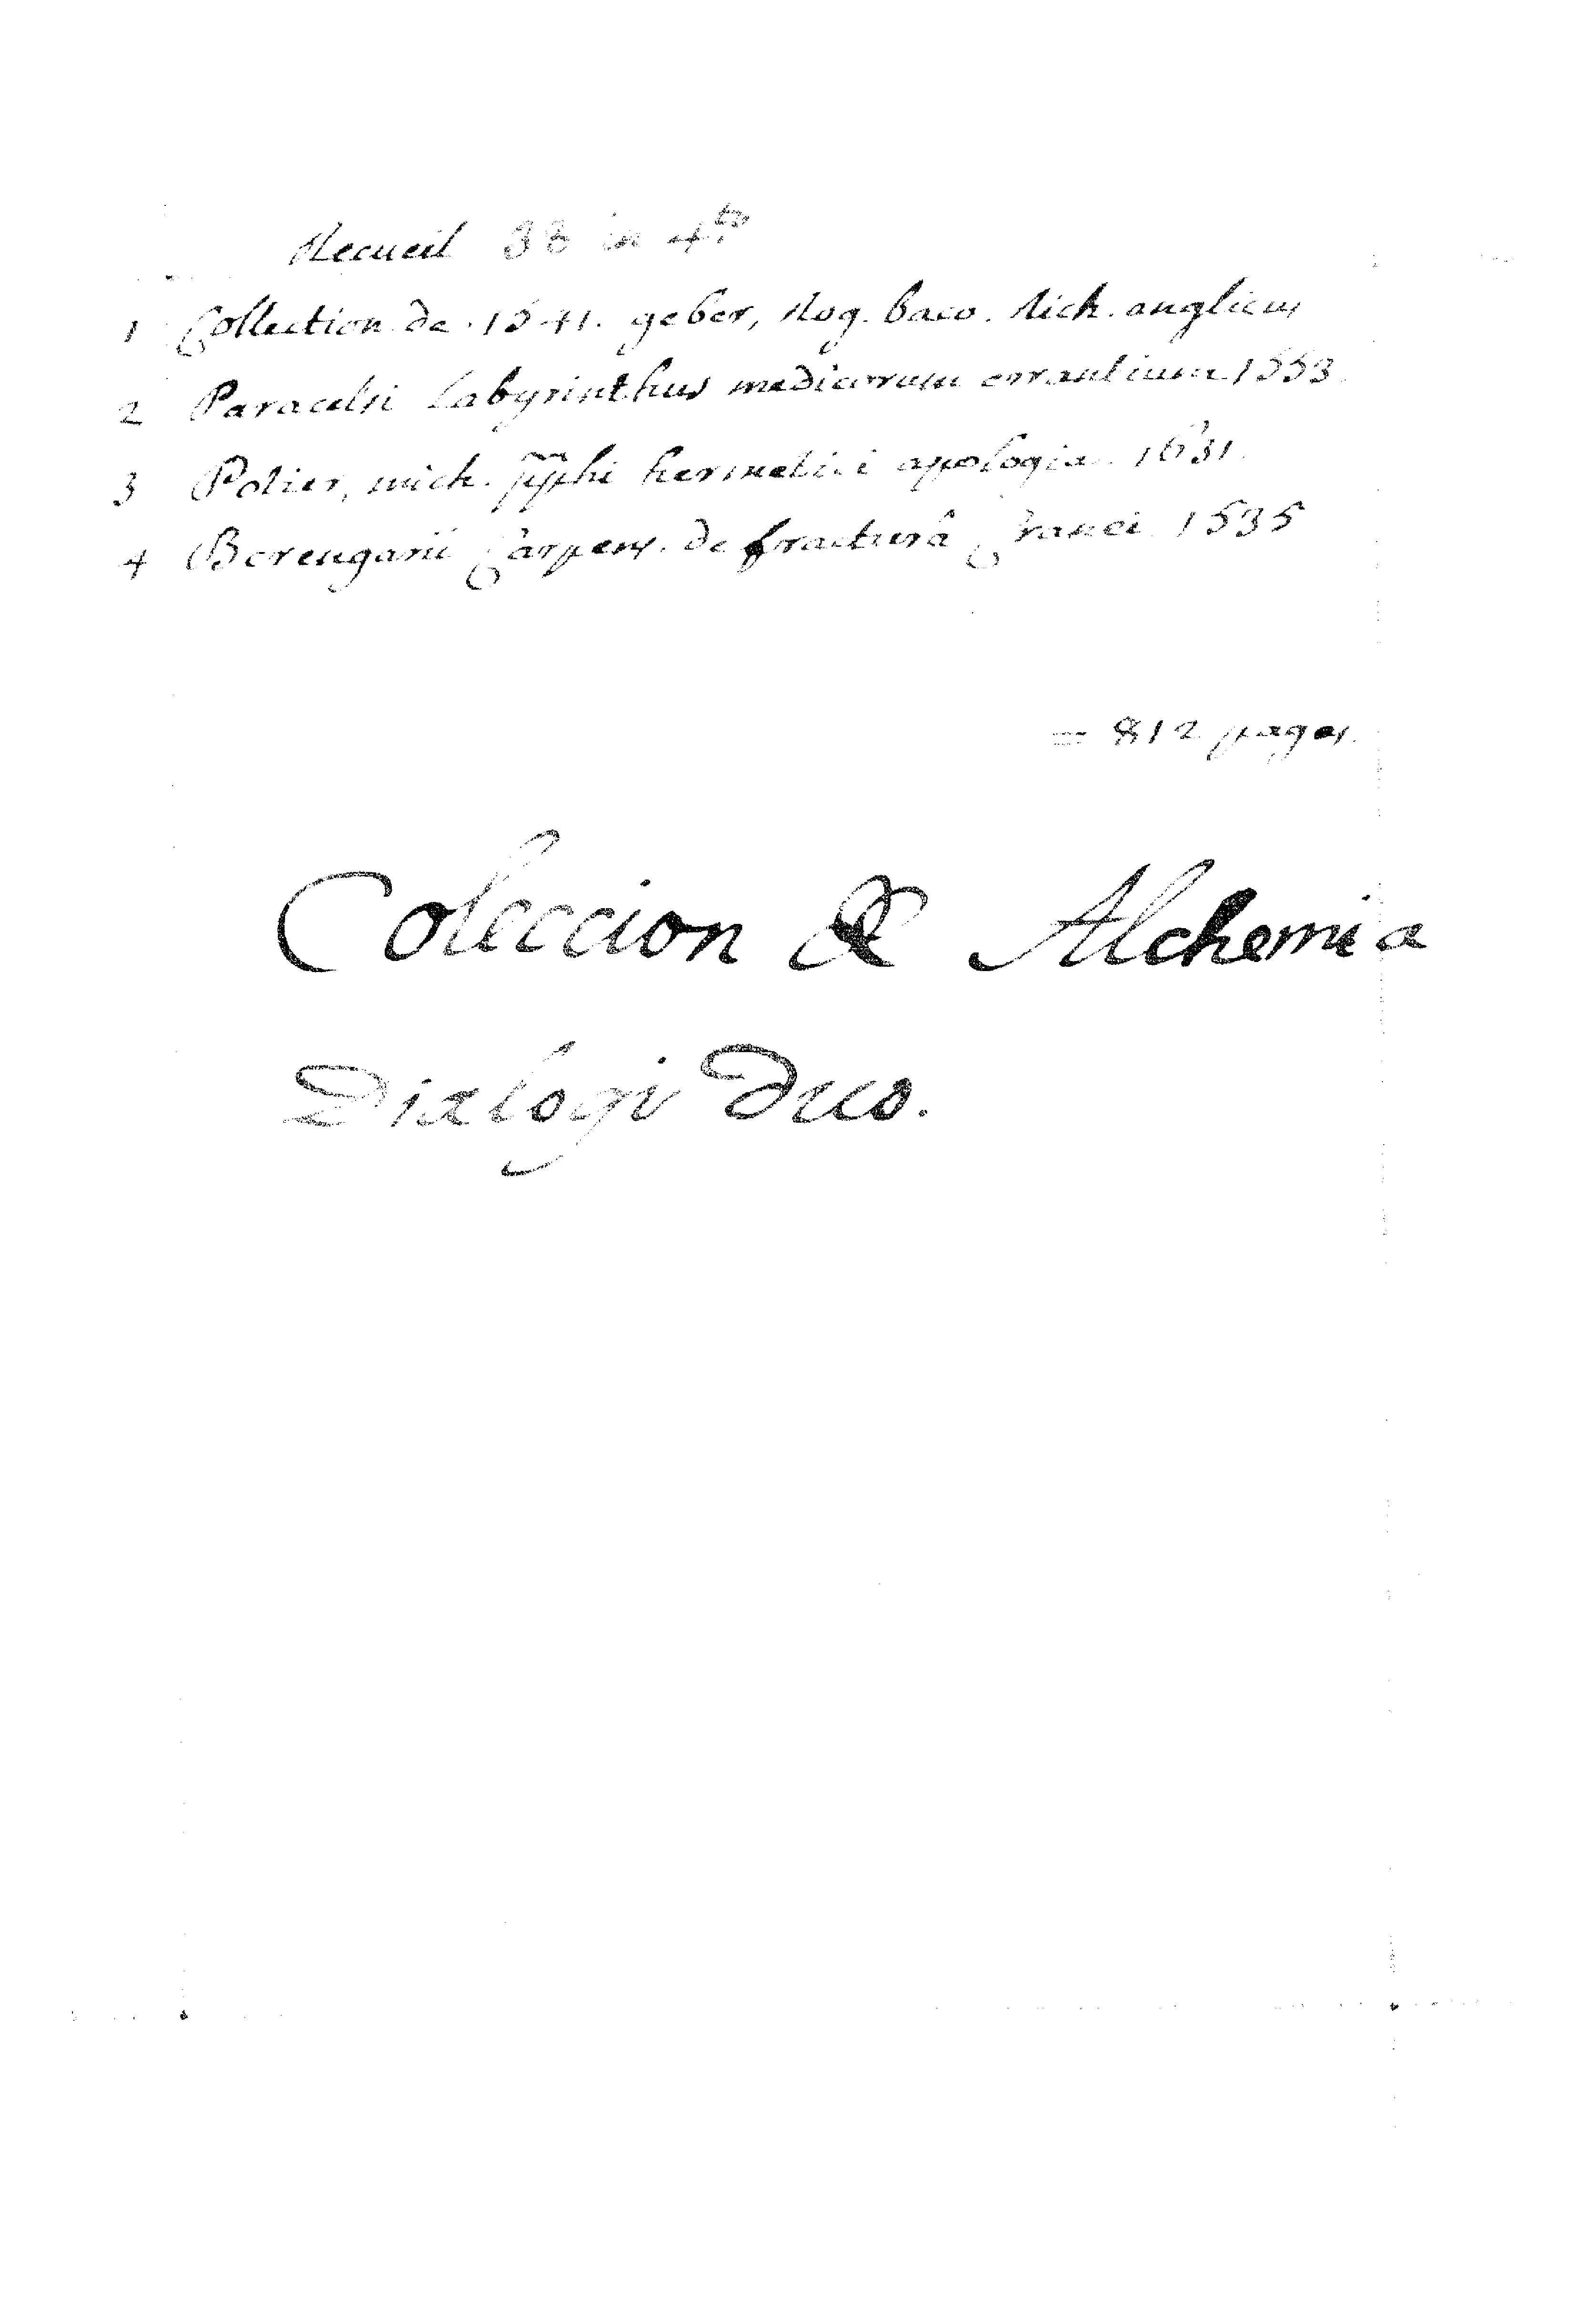 Recueil 38 in 4.to
1 Collection de 1541. geber, Rog. baco. Rich. anglicus
2 Paracelsi Labyrinthus medicorum errantium 1553.
3 Potier, mich. pphi hermetici apologia. 1631.
4 Berengarii Carpens. de fracturâ Cranei 1535
= 812 pages.
Coleccion de Alchemia
Dialogi duo.